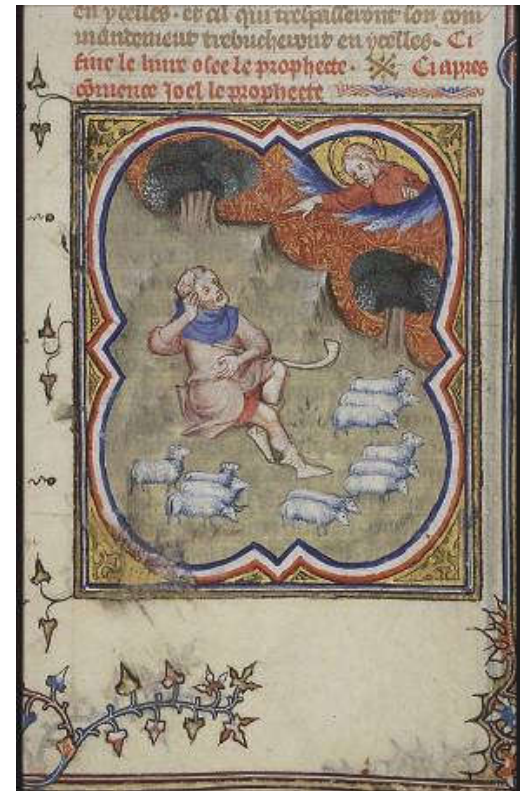 en ycelles. et cil qui trespasseront son com
mandement trebucheront en ycelles. Ci
fine le liure osee le prophecte. Ci apres
cōmence Joel le prophecte